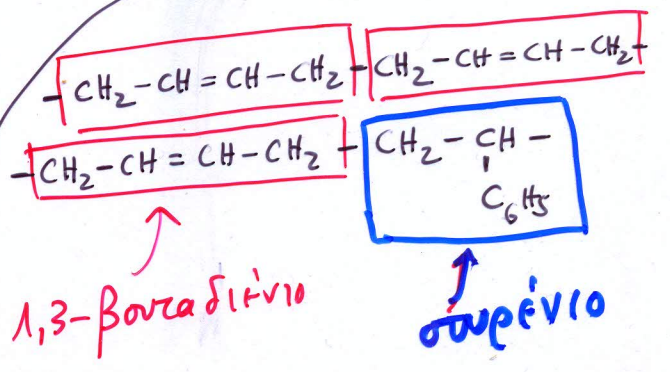 -CH₂-CH=CH-CH₂-CH₂-CH=CH-CH₂-
-CH₂-CH=CH-CH₂-CH₂-CH-
C₆H₅
1,3-βουταδιένιο
στυρένιο